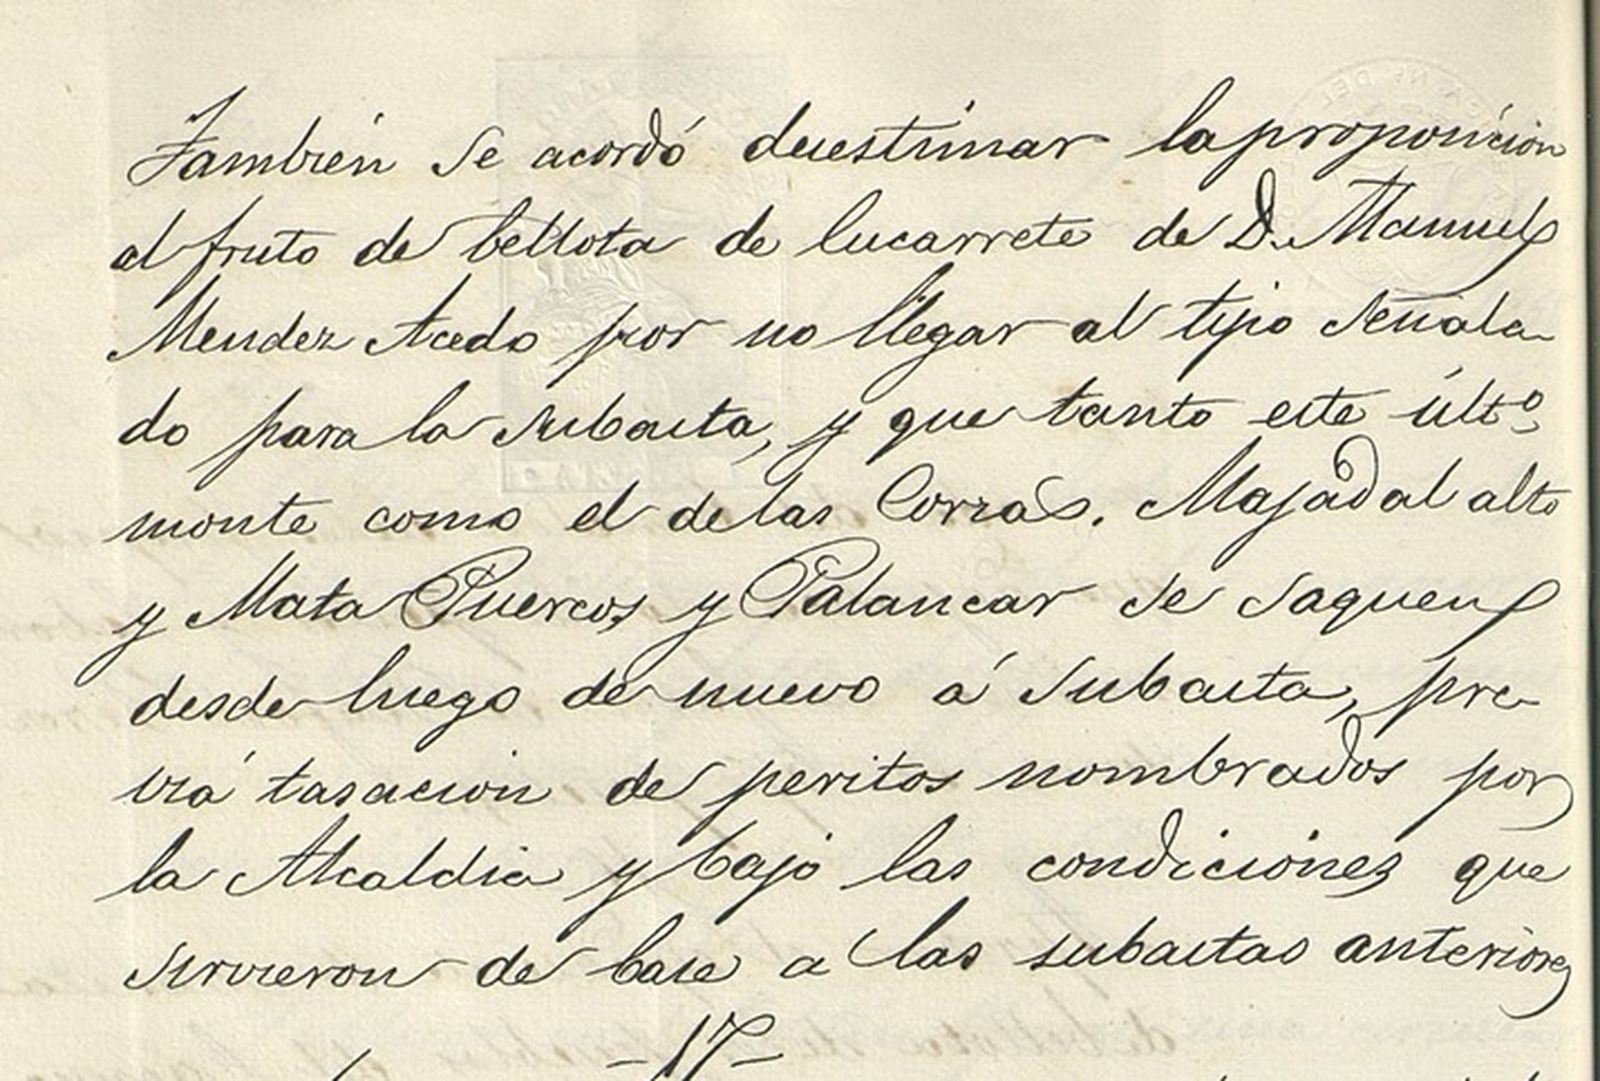 También se acordó desestimar la proposición
al fruto de bellota de lucarrete de D. Manuel
Mendez Acedo por no llegar al tipo señala-
do para la subasta, y que tanto este últº
monte como el de las Corzas. Majadal alto
y Mata Puercos y Palancar se saquen
desde luego de nuevo á subasta, pre-
viá tasacion de peritos nombrados por
la Alcaldia y bajo las condiciones que
sirvieron de base a las subastas anteriores
-17-